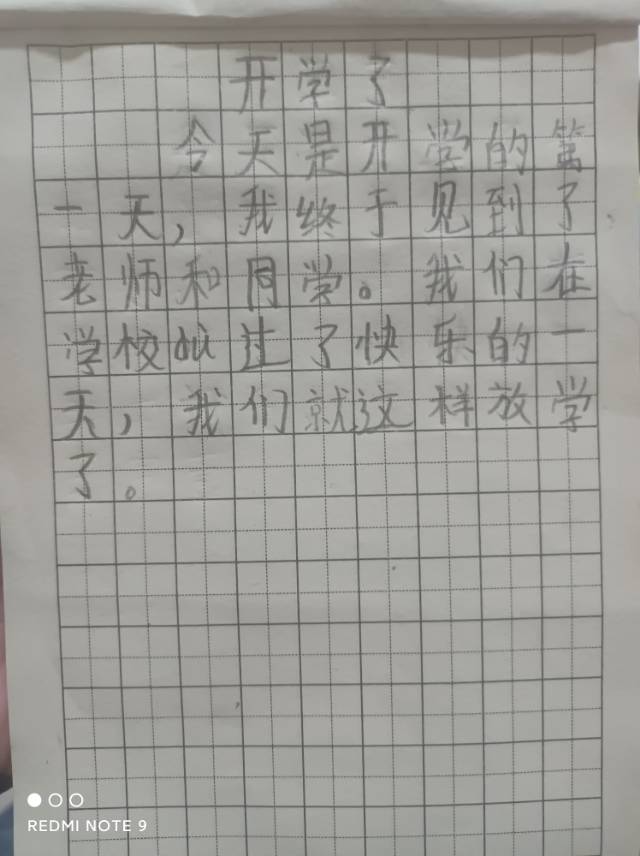 开学了
今天是开学的第
一天，我终于见到了
老师和同学。我们在
学校 过了快乐的一
天，我们就这样放学
了。
REDMI NOTE 9